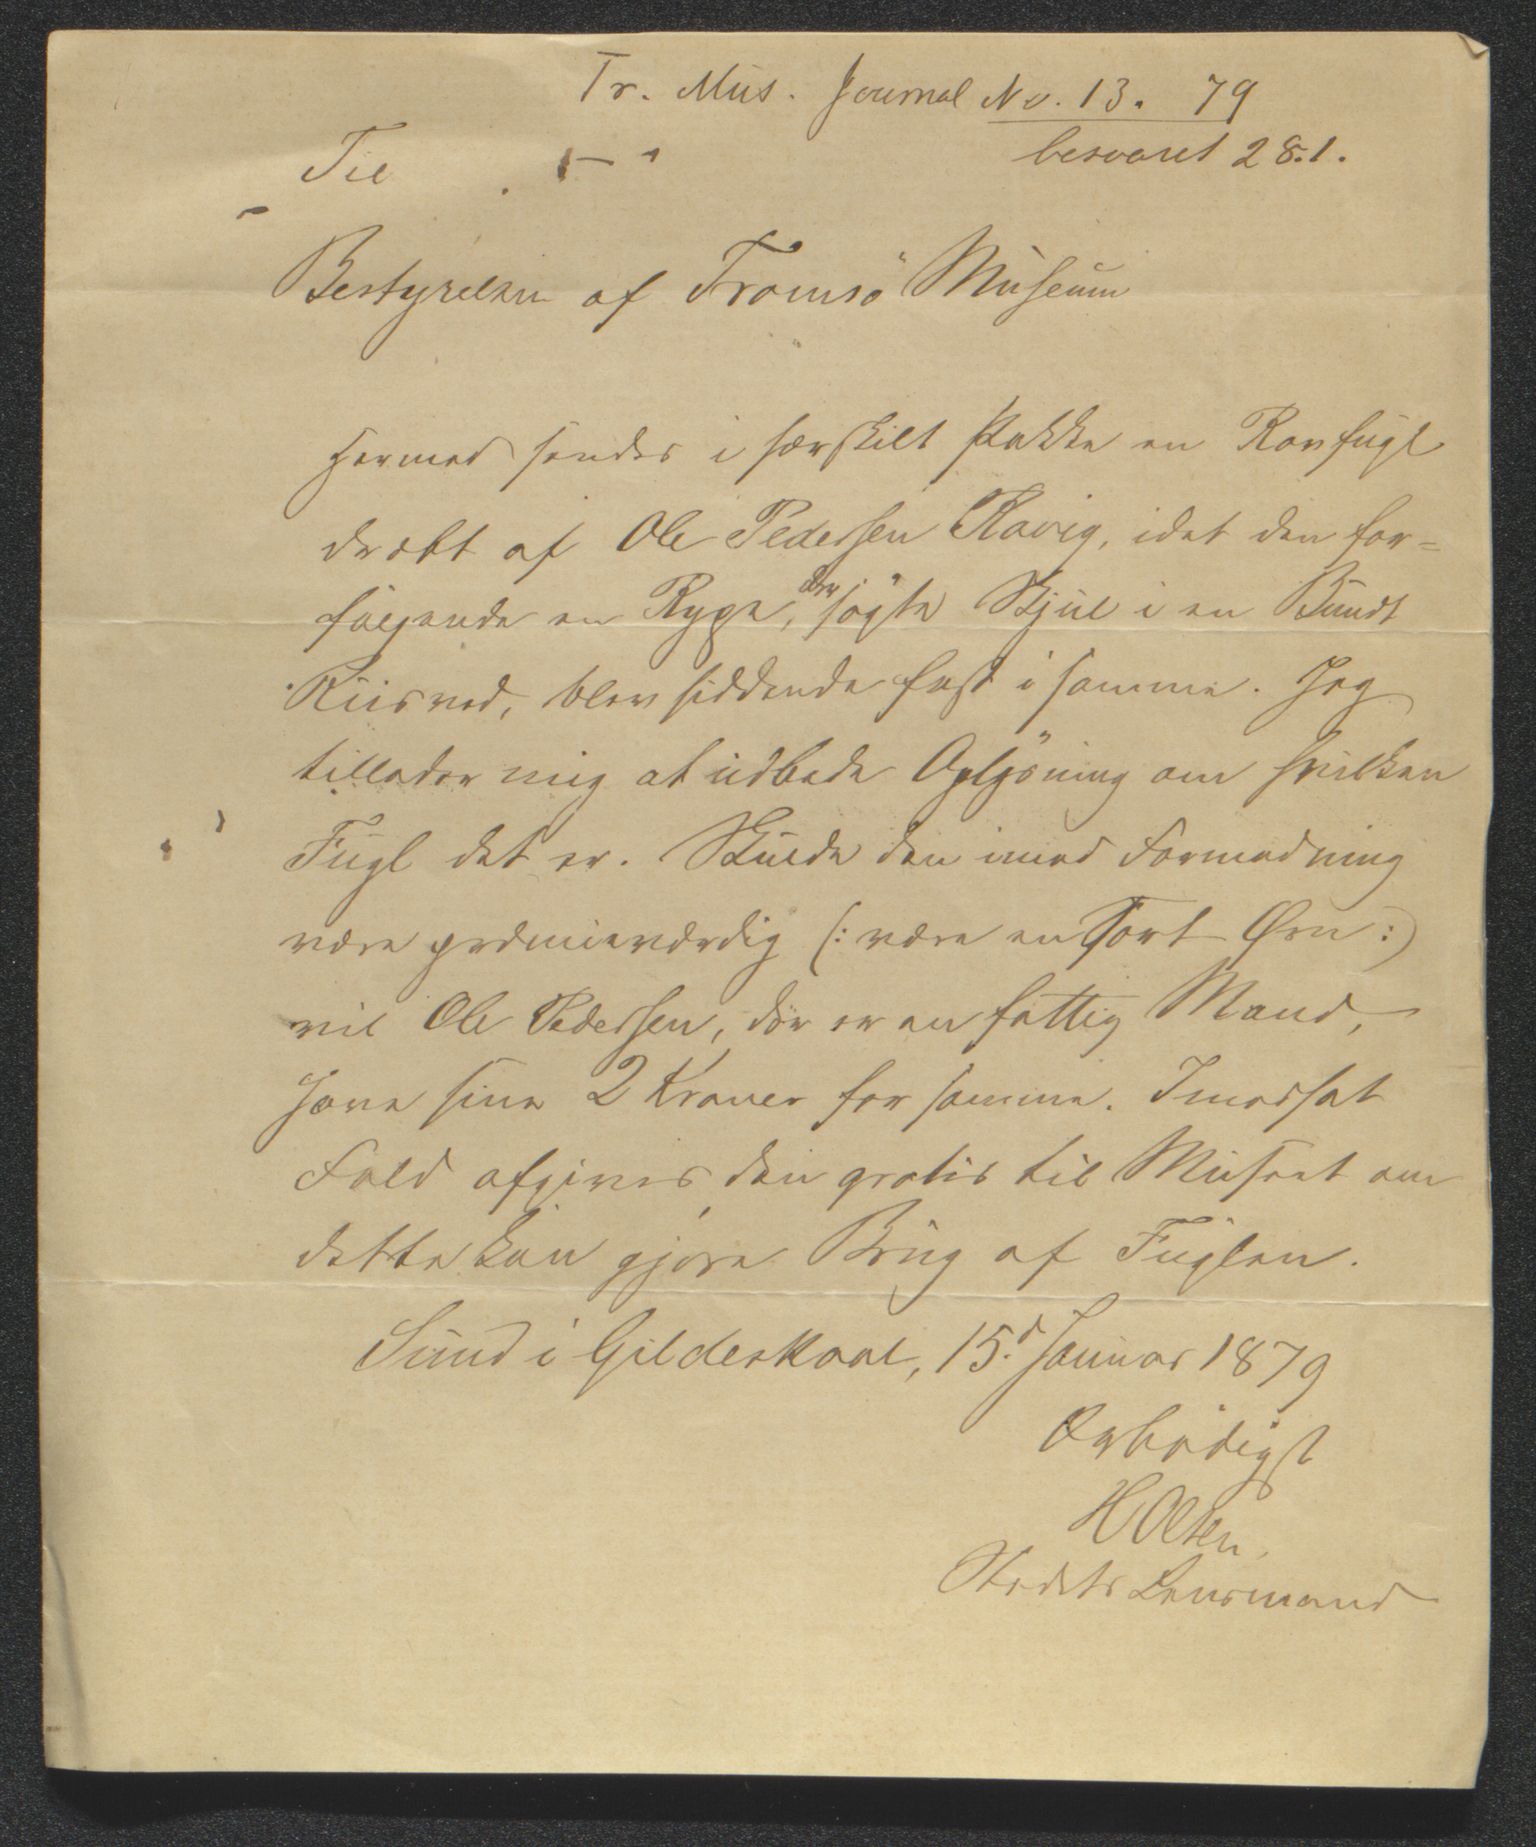 Tr. Mus. Journal No. 13. 79
besvaret 28.1.
Til
Bestyrelsen af Tromsö Museum
Hermed sendes i særskilt Pakke en Rovfugl
dræbt af Ole Pedersen Ravig, idet den for-
følgende en Rype, der søgte Skjul i en Bundt
Riisved, blev siddende fast i samme. Jeg
tillader mig at udbede Oplysning om hvilken
Fugl det er. Skulde den imod Formodning
være præmieværdig (: være en Sort Ørn :)
vil Ole Pedersen, der er en fattig Mand,
have sine 2 Kroner for samme. I modsat
Fald afgives den gratis til Museet om
dette kan gjøre Brug af Fuglen.
Sund i Gildeskaal, 15d Januar 1879
Ærbødigst
H Olsen,
Stedets Lensmand